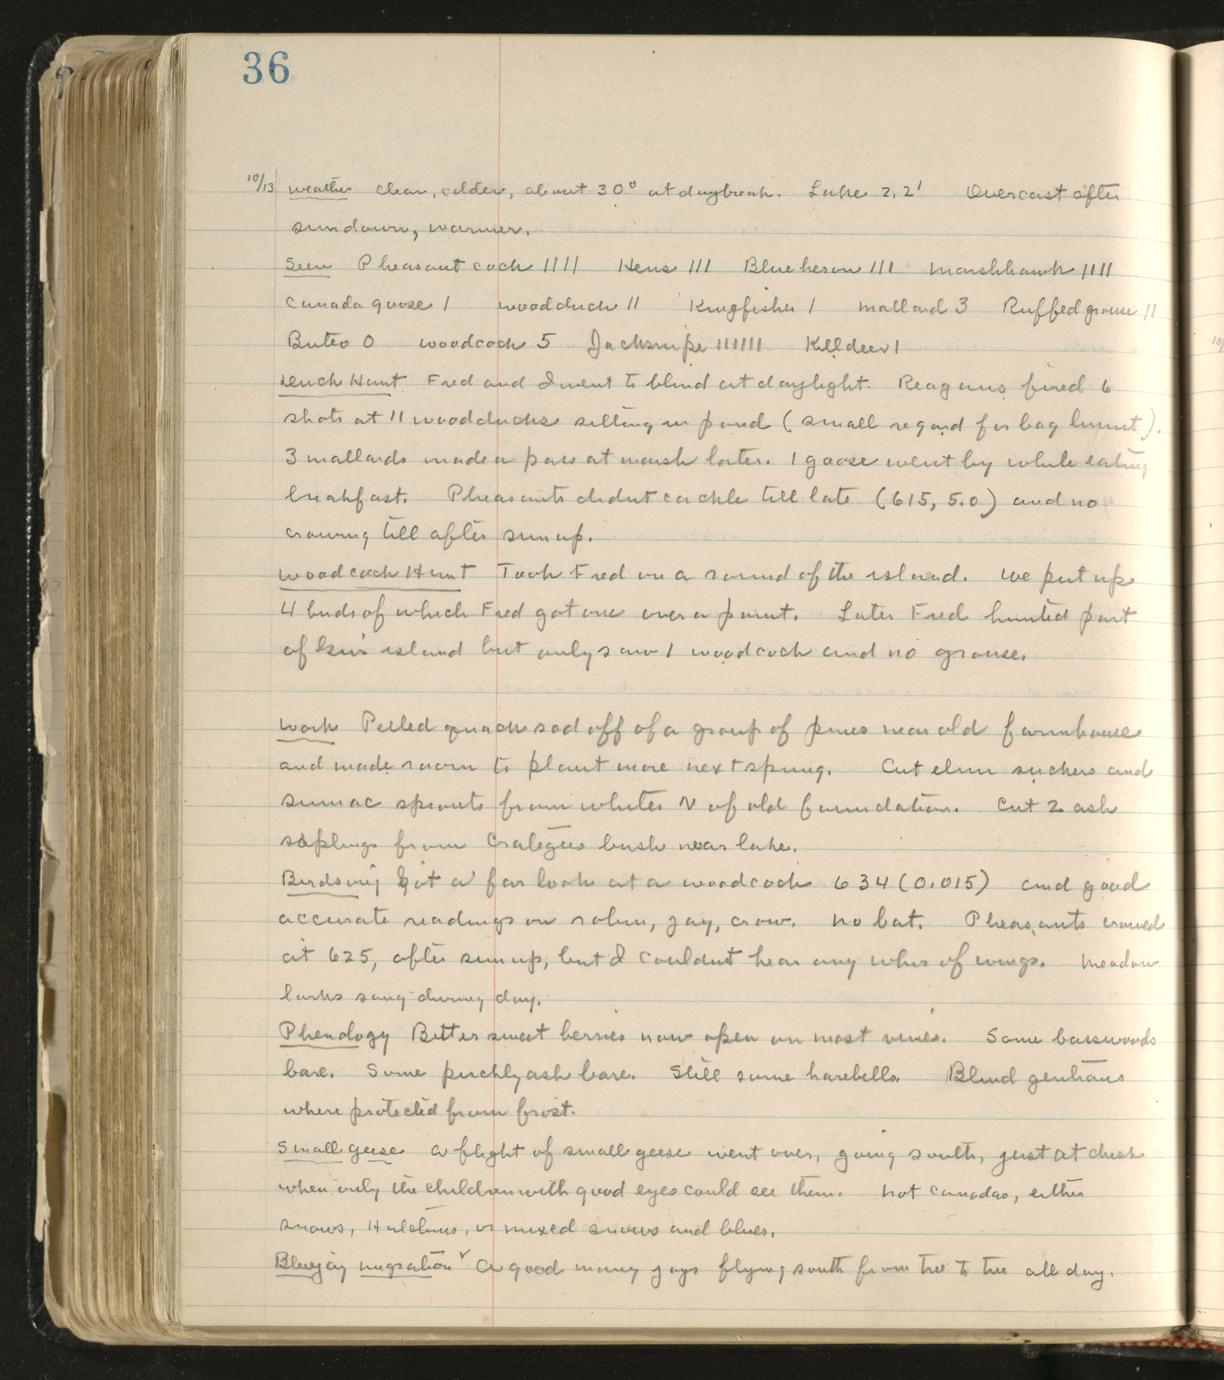 36
10/13 Weather clear, colder, about 30° at daybreak. Lake 2.2' Overcast after
sundown, warmer.
Seen Pheasant cock |||| Hens ||| Blue heron ||| Marshhawk ||||
Canada goose 1 woodduck || Kingfisher 1 mallard 3 Ruffed grouse ||
Buteo 0 woodcock 5 Jacksnipe |||||| Killdeer 1
Duck Hunt Fred and I went to blind at daylight. Reagans fired 6
shots at 11 woodducks sitting in pond (small regard for bag limit).
3 mallards made a pass at marsh later. 1 goose went by while eating
breakfast. Pheasants didnt cackle till late (615, 5.0) and no
crowing till after sunup.
Woodcock Hunt Took Fred on a round of the island. We put up
4 birds of which Fred got one over a point. Later Fred hunted part
of island but only saw 1 woodcock and no grouse.
Work Pelled quack sod off of a group of pines near old farmhouse
and made room to plant more next spring. Cut elm suckers and
sumac sprouts from whites N of old foundation. Cut 2 ash
saplings from Crategus bush near lake.
Birdsong Got a fair look at a woodcock 634 (0.015) and good
accurate readings on robin, jay, crow. No bat. Pheasants crowed
at 625, after sunup, but I couldnt hear any whir of wings. Meadow
larks sang during day.
Phenology Bittersweet berries now open on most vines. Some basswoods
bare. Some prickly ash bare. Still some harebells. Blind gentians
where protected from frost.
Small geese A flight of small geese went over, going south, just at dusk
when only the children with good eyes could see them. Not Canadas, either
snows, Hutchins, or mixed snows and blues.
Bluejay migration A good many jays flying south from tree to tree all day.